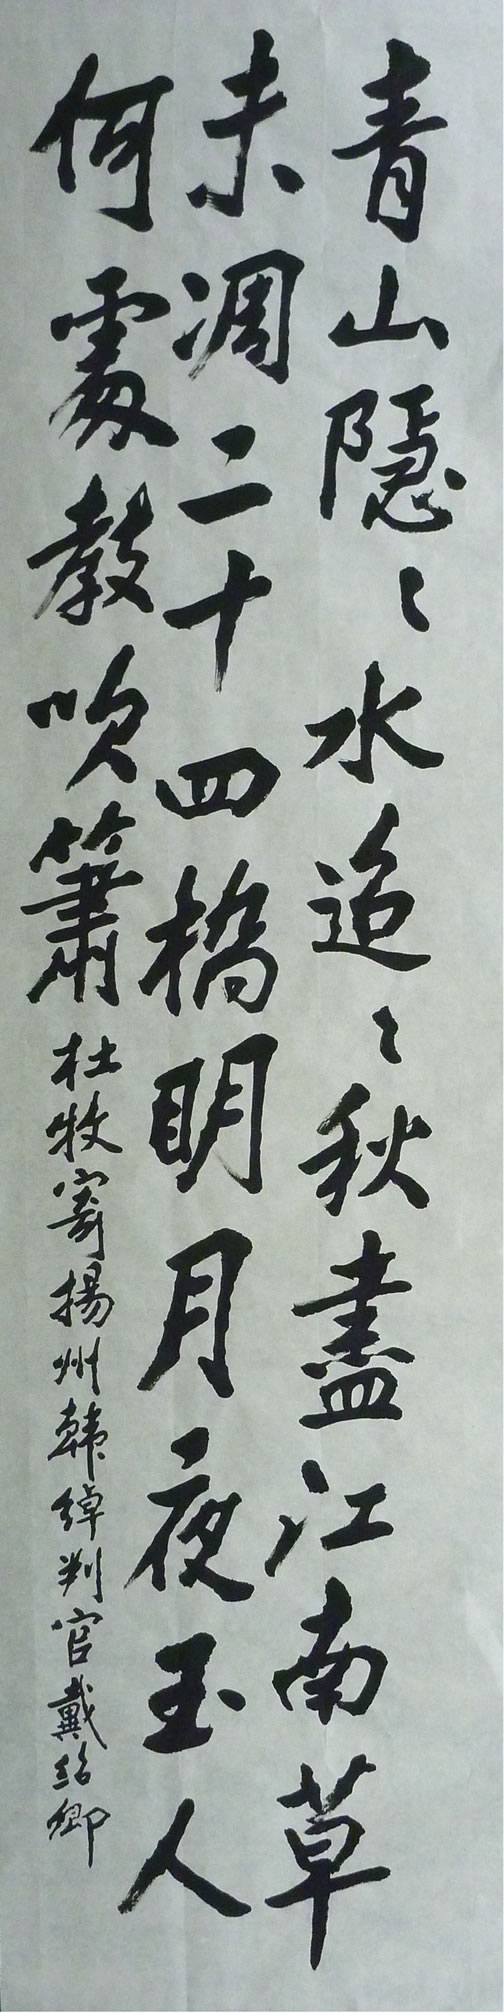 青山隐〻水迢〻秋盡江南草
未凋二十四橋明月夜玉人
何處教吹簫
杜牧寄揚州韓綽判官戴紹卿